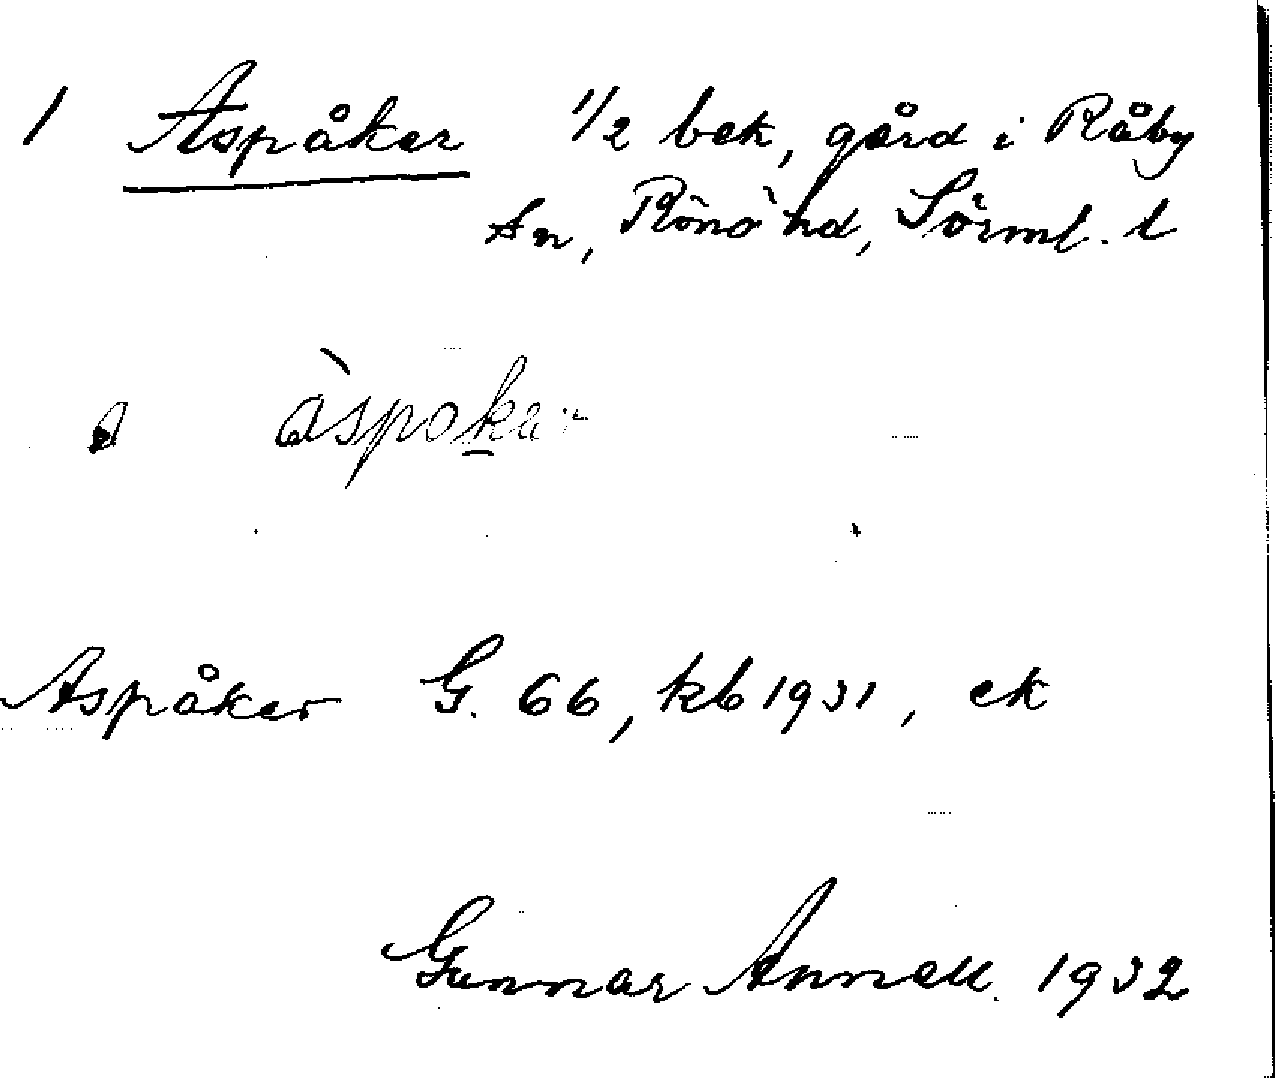 1 Aspåker 1/2 bek, gård i Råby
sn, Rönö hd, Sörml. l
a àspokar
Aspåker G. 66, kb 1931, ek
Gunnar Annell 1932